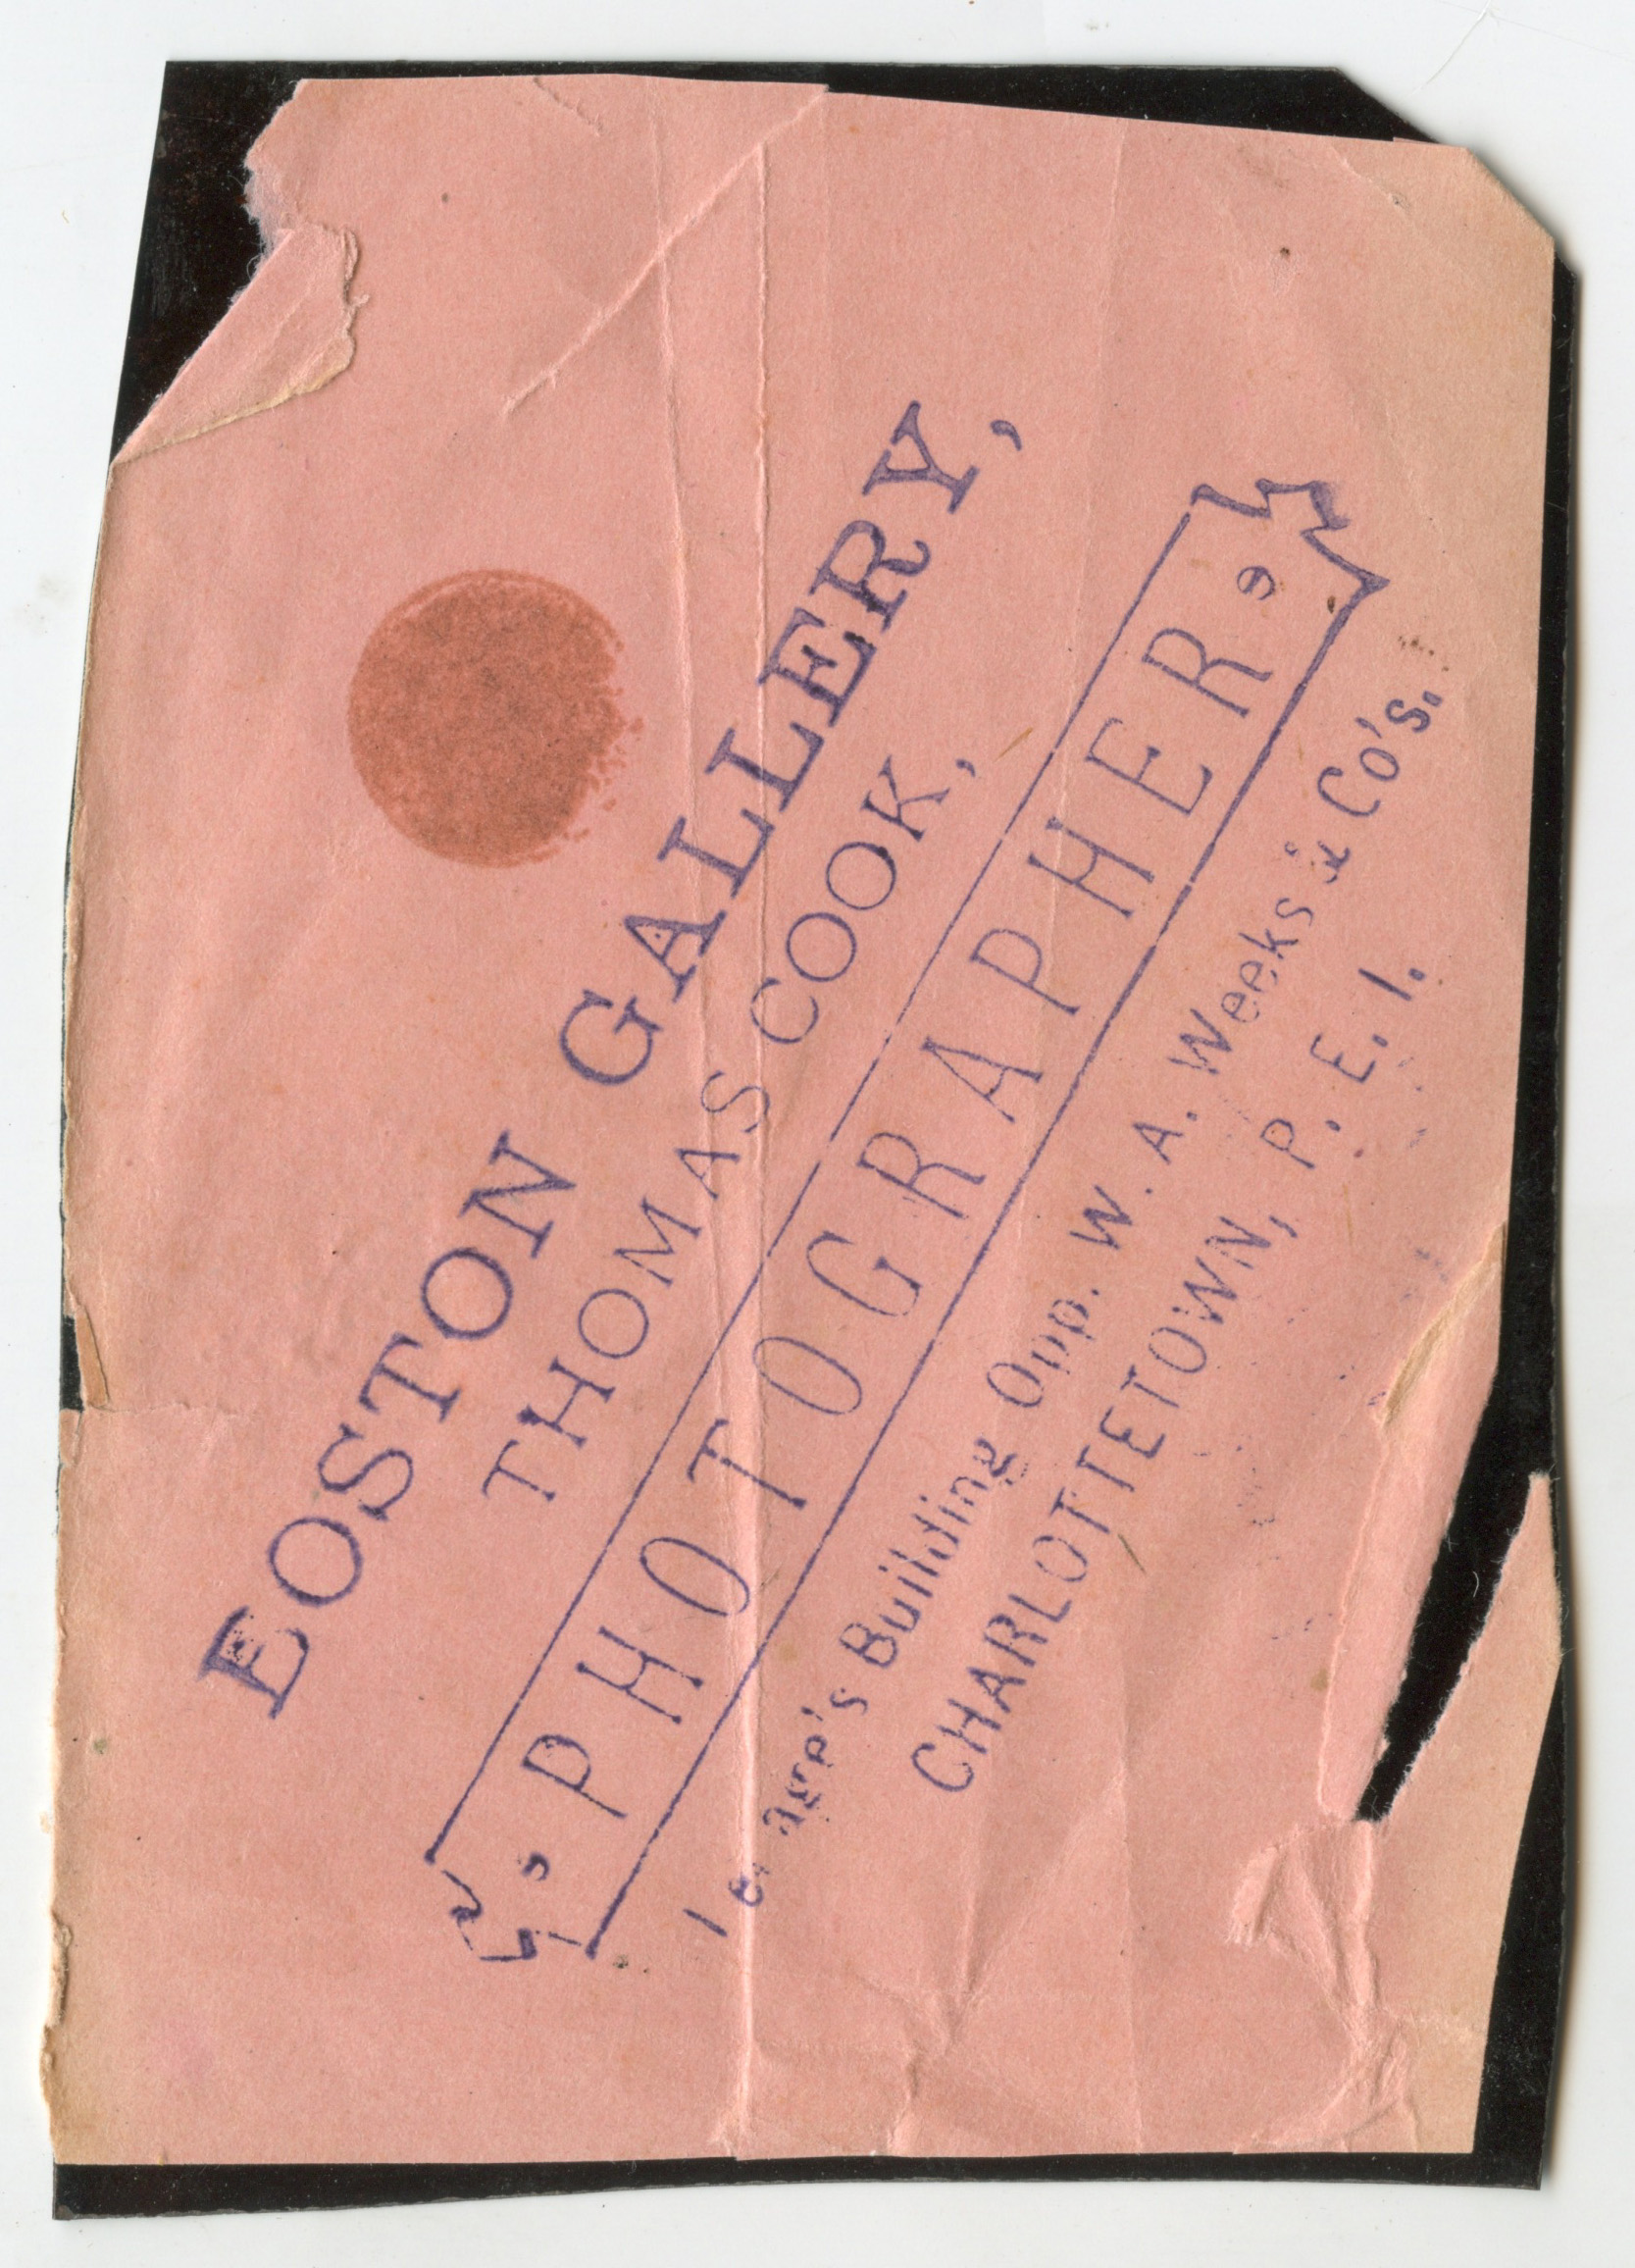 BOSTON GALLERY,
THOMAS COOK,
PHOTOGRAPHER
Building Opp. W. A. Weeks & Co's.
CHARLOTTETOWN, P. E. I.